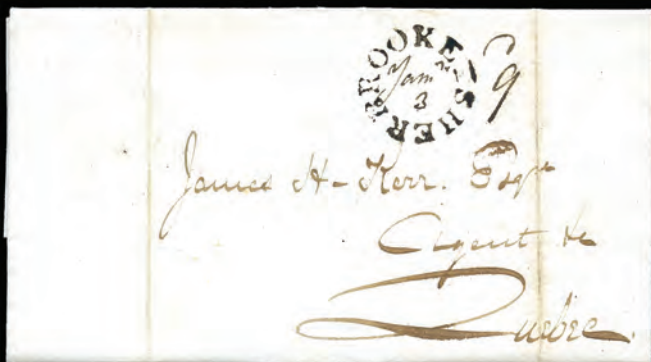 SHERBROOKE
Jany
3
9
James H- Kerr. Esqre
Agent &c
Quebec.